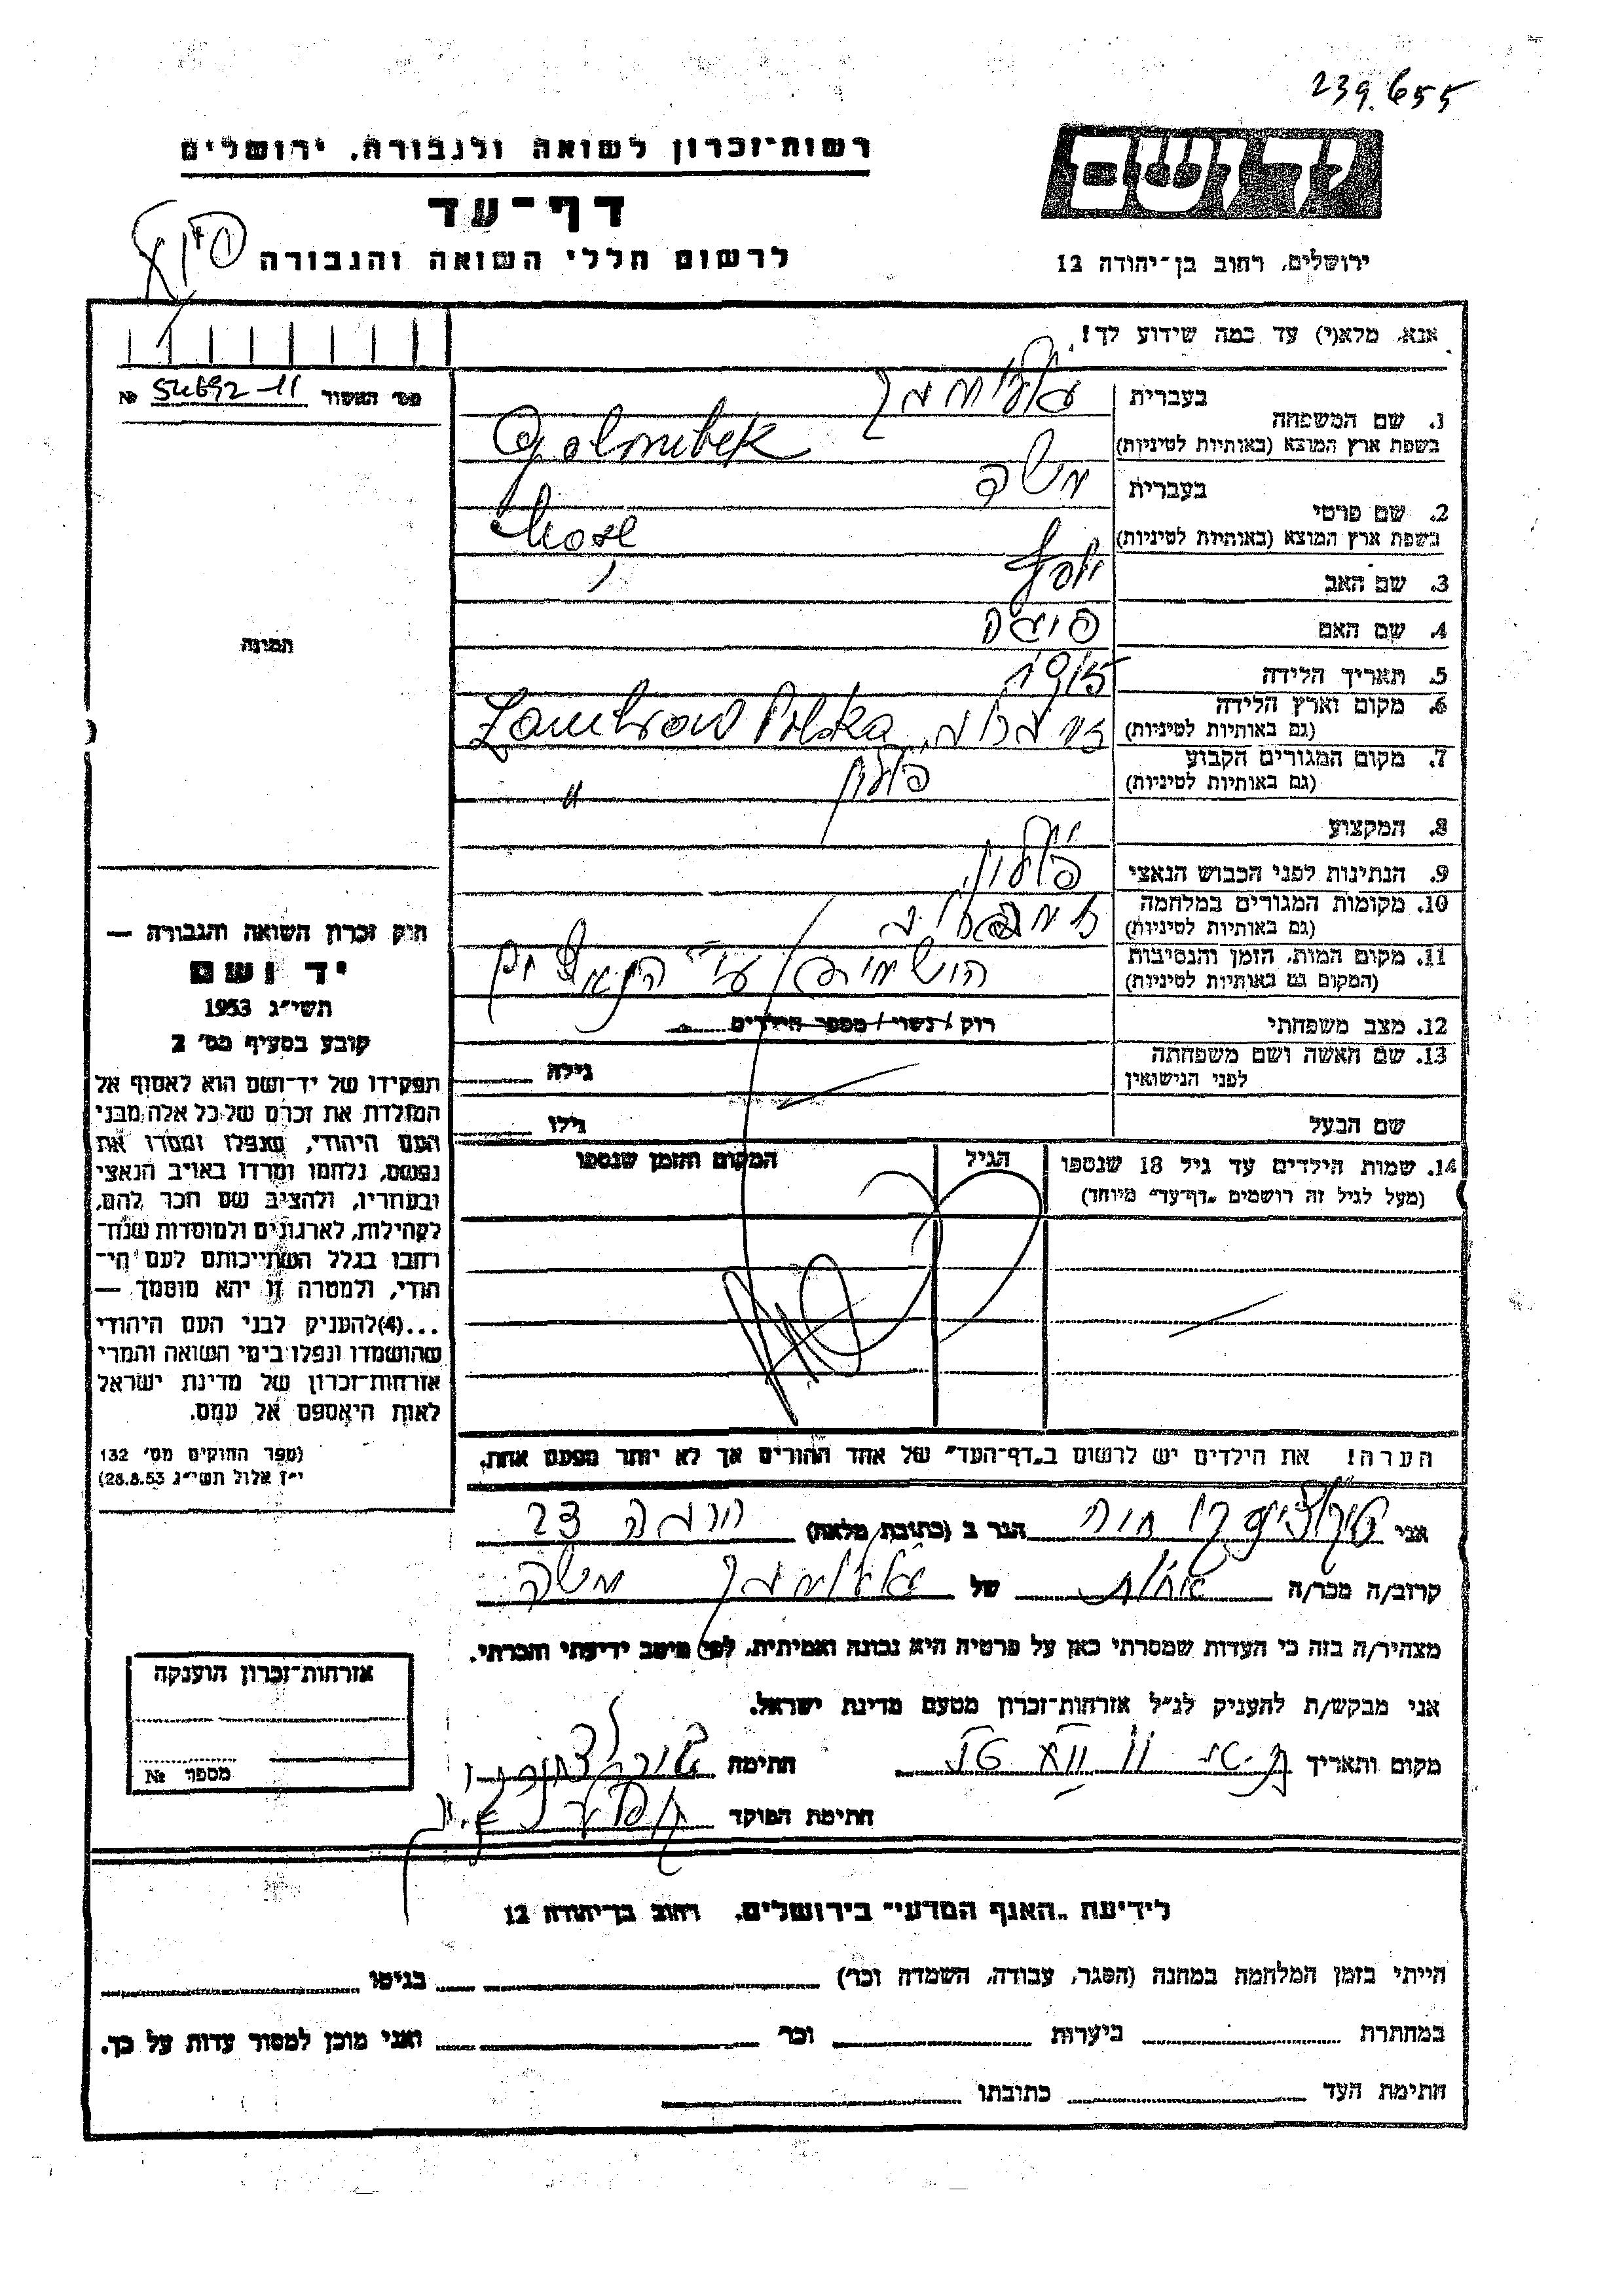 239.655
רשות־זכרון לשואה ולגבורה, ירושלים
יד ושם
דף־עד
לרשום חללי השואה והגבורה
ירושלים, רחוב בן־יהודה 12
אנא, מלא(י) עד כמה שידוע לך!
מס' האשור 54692-11 №
1. שם המשפחה
בעברית גולומבק
בשפת ארץ המוצא (באותיות לטיניות) Golombek
2. שם פרטי
בעברית משה
בשפת ארץ המוצא (באותיות לטיניות)
3. שם האב יוסף
4. שם האם
5. תאריך הלידה 1915
6. מקום וארץ הלידה
(גם באותיות לטיניות) Zambrow Polska
7. מקום המגורים הקבוע פולין
(גם באותיות לטיניות) "
8. המקצוע
9. הנתינות לפני הכבוש הנאצי פולין
10. מקומות המגורים במלחמה
(גם באותיות לטיניות)
11. מקום המות, הזמן והנסיבות
(המקום גם באותיות לטיניות) ע"י הנאצים
12. מצב משפחתי רווק / נשוי / מספר הילדים
13. שם האשה ושם משפחתה גילה
לפני הנישואין
שם הבעל גילו
14. שמות הילדים עד גיל 18 שנספו הגיל המקום והזמן שנספו
(מעל לגיל זה רושמים „דף־עד" מיוחד)
הערה! את הילדים יש לרשום ב„דף־העד" של אחד ההורים אך לא יותר מפעם אחת.
תמונה
חוק זכרון השואה והגבורה —
יד ושם
תשי"ג 1953
קובע בסעיף מס' 2
תפקידו של יד־ושם הוא לאסוף אל
המולדת את זכרם של כל אלה מבני
העם היהודי, שנפלו ומסרו את
נפשם, נלחמו ומרדו באויב הנאצי
ובעוזריו, ולהציב שם וזכר להם,
לקהילות, לארגונים ולמוסדות שנח־
רבו בגלל השתייכותם לעם הי־
הודי, ולמטרה זו יהא מוסמך —
...(4)להעניק לבני העם היהודי
שהושמדו ונפלו בימי השואה והמרי
אזרחות־זכרון של מדינת ישראל
לאות היאספם אל עמם.
(ספר החוקים מס' 132
י"ז אלול תשי"ג 28.8.53)
אני חוה הגר ב (כתובת מלאה) 23
קרוב/ה מכר/ה אחות של גולומבק משה
מצהיר/ה בזה כי העדות שמסרתי כאן על פרטיה היא נכונה ואמיתית, לפי מיטב ידיעתי והכרתי.
אני מבקש/ת להעניק לנ"ל אזרחות־זכרון מטעם מדינת ישראל.
מקום ותאריך חתימה
חתימת הפוקד
אזרחות־זכרון הוענקה
מספר №
לידיעת „האגף המדעי" בירושלים, רחוב בן־יהודה 12
הייתי בזמן המלחמה במחנה (הסגר, עבודה, השמדה וכו') בגיטו
במחתרת ביערות וכו' ואני מוכן למסור עדות על כך.
חתימת העד כתובתו